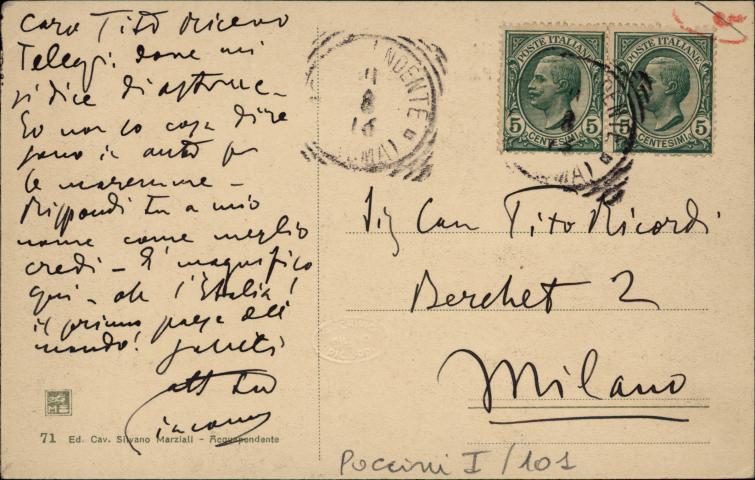 Caro Tito ricevo
Telegr: dove mi
si dice di
Io non so cosa dire
sono in auto per
le maremme -
Rispondi tu a mio
nome come meglio
credi - È magnifico
qui - oh l'Italia!
il primo paese del
mondo! Saluti
aff tuo
Giacomo
71 Ed. Cav. Silvano Marziali - Acquapendente
NDENTE
8
14
POSTE ITALIANE
5 CENTESIMI 5
POSTE ITALIANE
5 CENTESIMI 5
Sig Cav Tito Ricordi
Berchet 2
Milano
Puccini I/101